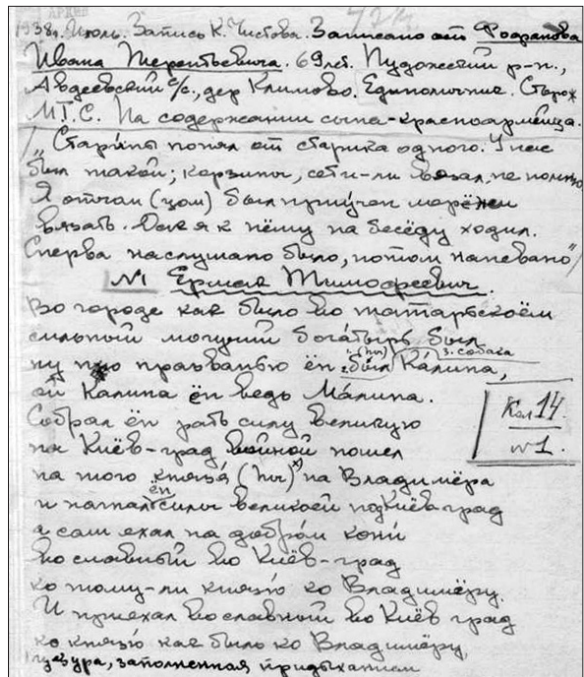 АРХИВ
1938г. Июль. Запись К. Чистова. Записано от Фофанова
Ивана Терентьевича. 69 лет. Пудожский р-н.,
Авдеевский с/с., дер Климово. Единоличник. Сторож
М.Т.С. На содержании сына-красноармейца.
"Старины понял от старика одного. У нас
был такой; корзины, сети-ли вязал, не помню
Я отчом (цом) был приучен мерёжи
вязать. Дак я к нёму на бесёду ходил.
Сперва наслушано было, потом напевано"/
№1 Ермак Тимофеевич.
Во городе как было во татарьскоём
сильный могущий богатырь был
ну по прозванью ён был (ны) Калина, 3. собака
ай Калина ён ведь Малина.
Собрал ён рать силу великую
на Киёв-град войной пошел
на того князя (ны)х на Владимёра
и нагнал ён силы великоей под Киёв град
а сам ехал на доброй кони
во славный во Киёв-град
ко тому-ли князю ко Владимёру.
И приехал во славный во Киёв град
ко князю как было ко Владимёру
цезура, заполненная придыханием
Кол 14
№1.